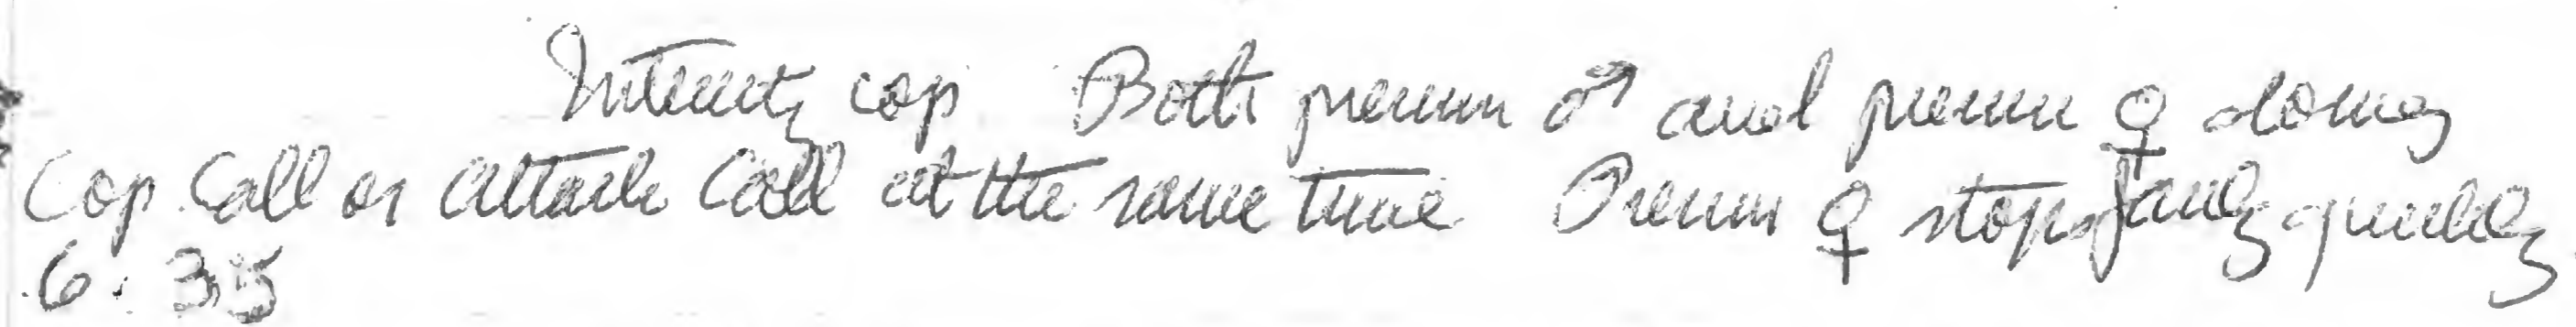 Intensity cop. Both prenum ♂ and prenum ♀ doing
Cop. Call or Attack Call at the same time. Prenum ♀ stops fairly quickly.
6:35